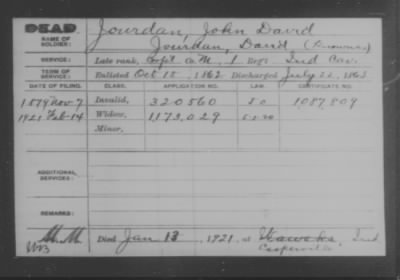 DEAD.
Jourdan, John David
NAME OF SOLDIER:
Jourdan, David
SERVICE: Late rank, Corpl Co. M, 1 Reg't Ind Cav.
TERM OF SERVICE: Enlisted Oct 15, 1862 Discharged July 1863
DATE OF FILING. CLASS. APPLICATION NO. LAW. CERTIFICATE NO.
1879 Nov 7 Invalid, 320560 1087,809
1921 Feb 14 Widow, 1173,029
Minor,
ADDITIONAL SERVICES:
REMARKS:
Died Jan 13, 1921, at Ind